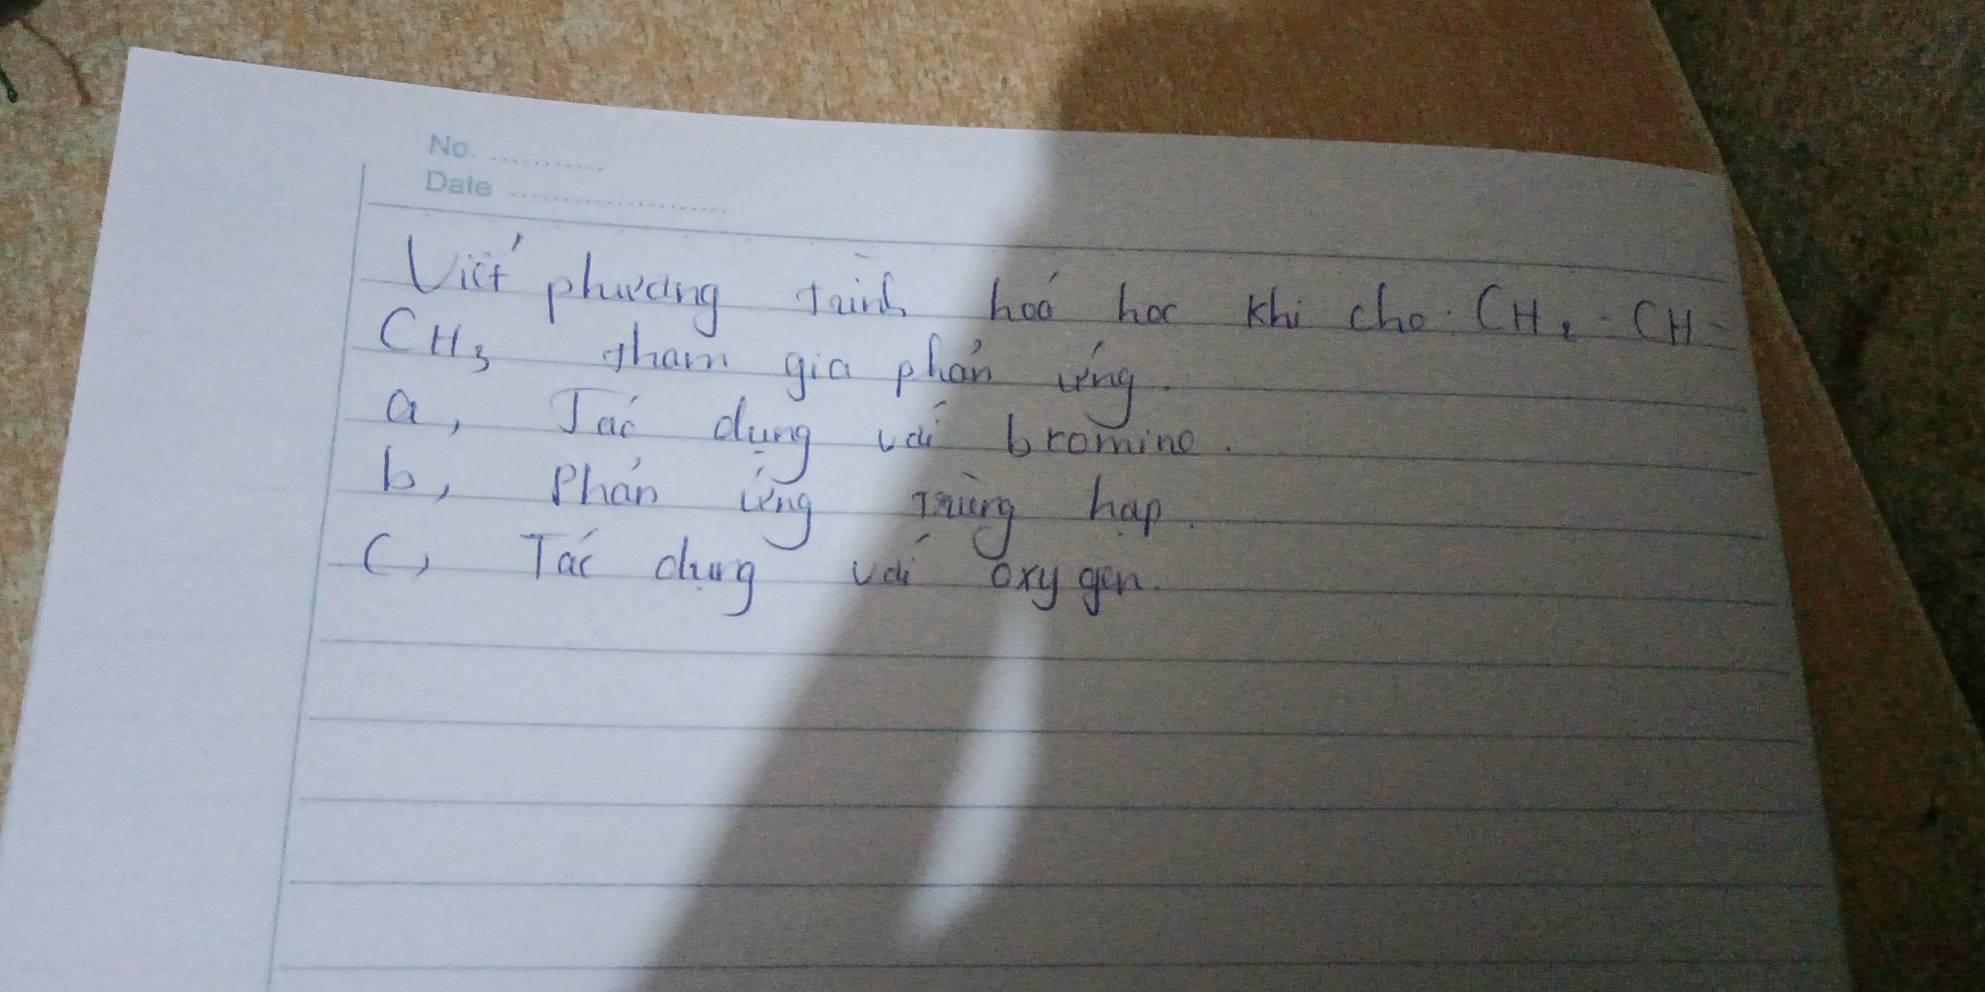 No.
Date
Viết phương trình hoá học khi cho CH2-CH-
CH3 tham gia phản ứng.
a, Tác dụng với bromine.
b, Phản ứng trùng hợp.
c, Tác dụng với oxygen.